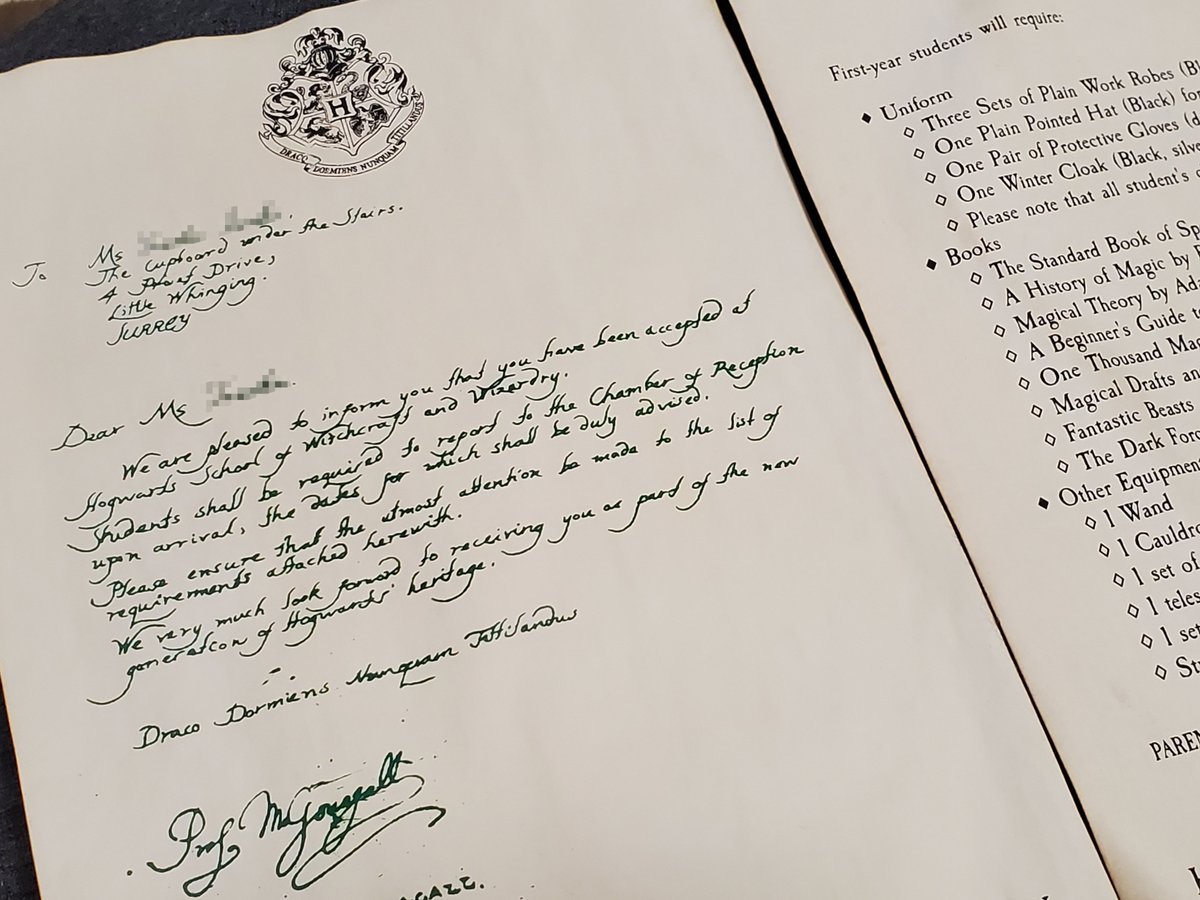 H
DRACO DORMIENS NUNQUAM TITILLANDUS
To Ms
The Cupboard under the Stairs.
4 Privet Drive,
Little Whinging.
SURREY
Dear Ms
We are pleased to inform you that you have been accepted at
Hogwarts School of Witchcraft and Wizardry.
Students shall be required to report to the Chamber of Reception
upon arrival, the dates for which shall be duly advised.
Please ensure that the utmost attention be made to the list of
requirements attached herewith.
We very much look forward to receiving you as part of the new
generation of Hogwarts' heritage.
Draco Dormiens Nunquam Tittilandus
Prof. McGonagall
First-year students will require:
◆ Uniform
◇ Three Sets of Plain Work Robes
◇ One Plain Pointed Hat (Black) for
◇ One Pair of Protective Gloves
◇ One Winter Cloak (Black,
◇ Please note that all student's
◆ Books
◇ The Standard Book of
◇ A History of Magic by
◇ Magical Theory by
◇ A Beginner's Guide
◇ One Thousand
◇ Magical Drafts
◇ Fantastic Beasts
◇ The Dark
◆ Other
◇ 1 Wand
◇ 1
◇ 1 set of
◇ 1
◇ 1